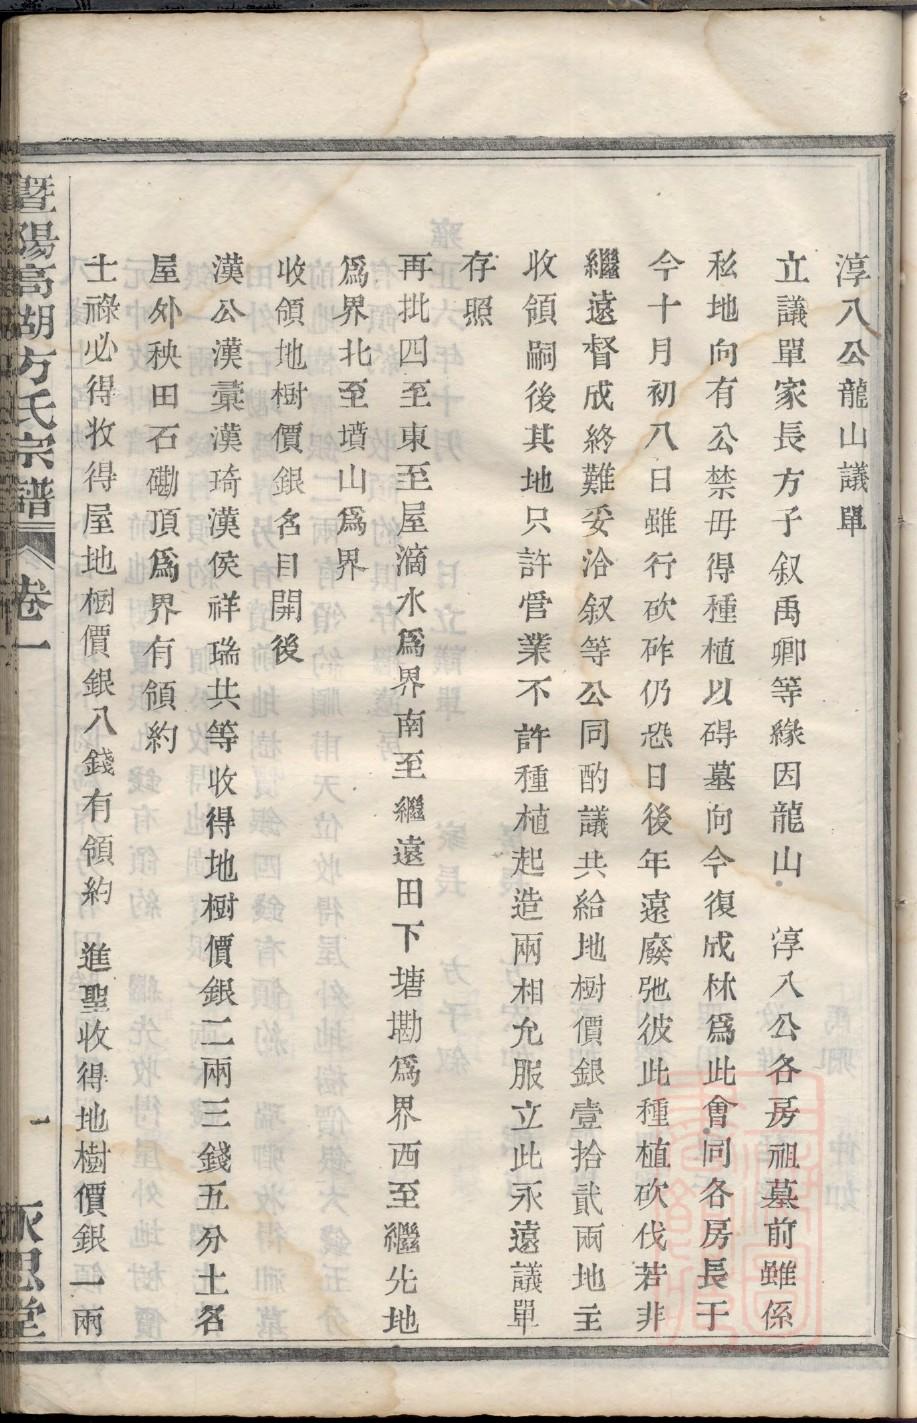 淳八公龍山議單
立議單家長方子叙禹卿等緣因龍山　淳八公各房祖墓前雖係
私地向有公禁毋得種植以碍墓向今復成林爲此會同各房長于
今十月初八日雖行砍砟仍恐日後年遠廢弛彼此種植砍伐若非
繼遠督成終難妥洽叙等公同酌議共給地樹價銀壹拾貳兩地主
收領嗣後其地只許管業不許種植起造兩相允服立此永遠議單
存照
再批四至東至屋滴水爲界南至繼遠田下塘磡爲界西至繼先地
爲界北至墳山爲界
收領地樹價銀名目開後
漢公漢藁漢琦漢侯祥瑞共等收得地樹價銀二兩三錢五分土名
屋外秧田石磡頂爲界有領約
士祿必得收得屋地樹價銀八錢有領約　進聖收得地樹價銀一兩
暨陽高湖方氏宗譜　卷一　一　永思堂